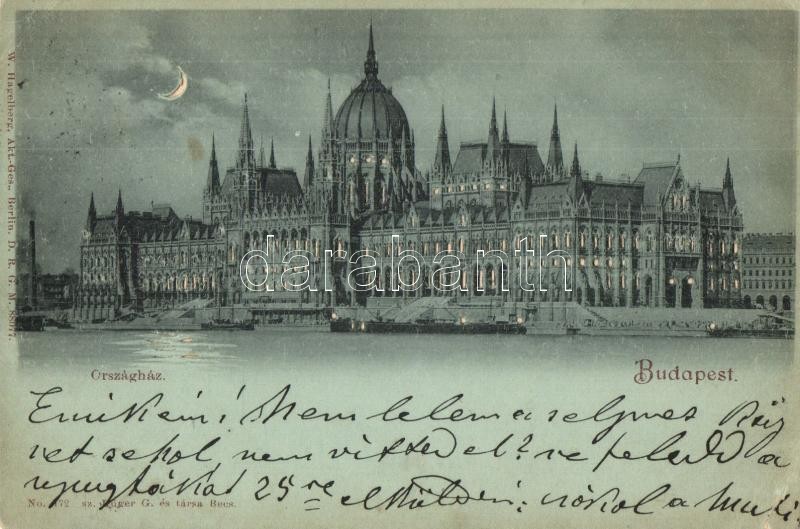 W. Hagelberg, Akt.-Ges., Berlin. D. R. G. M. 88077.
darabanth
Országház.
Budapest.
Emikém! Nem lelem a selymet
vet sehol, nem vitted el? ne feledd a
nyugtákat 25re elküldeni; csókol a Muki
No. 172 sz. Rüger G. és társa Becs.